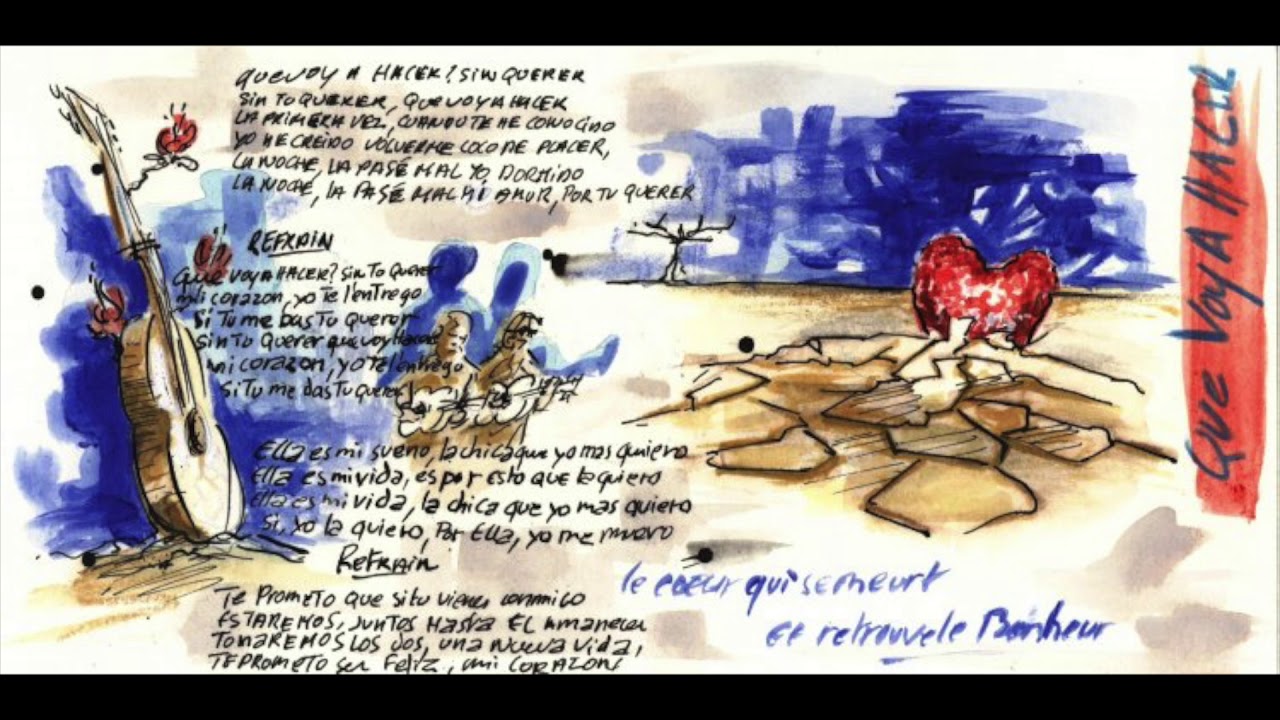 QUE VOY A HACER? SIN QUERER
SIN TU QUERER, QUE VOY A HACER
LA PRIMERA VEZ, CUANDO TE HE CONOCIDO
YO HE CREIDO VOLVERME LOCO DE PLACER,
LA NOCHE, LA PASÉ MAL YO DORMIDO
LA NOCHE, LA PASÉ MAL MI AMUR, POR TU QUERER
REFRAIN
Que voy a HACER? Sin Tu Querer
mi corazon, yo te l'entrego
Si Tu me das Tu Querer
Sin Tu Querer que voy Hacer
mi corazon, yo Te l'entrego
Si Tu me das Tu Querer
Ella es mi sueno, la chica que yo mas quiero
Ella es mi vida, es por esto que la quiero
Ella es mi vida, la chica que yo mas quiero
Si, yo la quiero, Por Ella, yo me muero
Refrain
Te Prometo que si tu vienes conmigo
ESTAREMOS, JUNTOS HASTA EL Amanecer
TOMAREMOS LOS DOS, una nueva vida,
TE PROMETO SER Feliz, mi CORAZON
le coeur qui se meurt
et retrouve le Bonheur
Que Voy A HACER